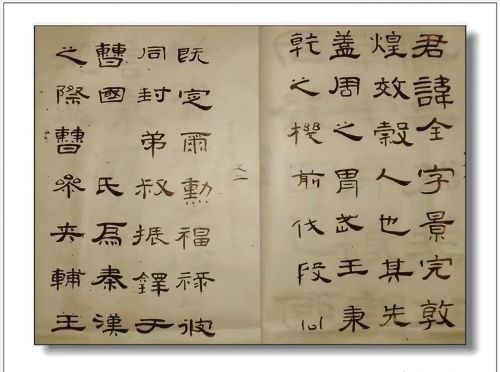 君諱全字景完敦
煌效穀人也其先
盖周之胄武王秉
乾之機前伐殷
既定爾勳福祿攸
同封弟叔振鐸于
曹國氏焉秦漢
之際曹參夾輔王